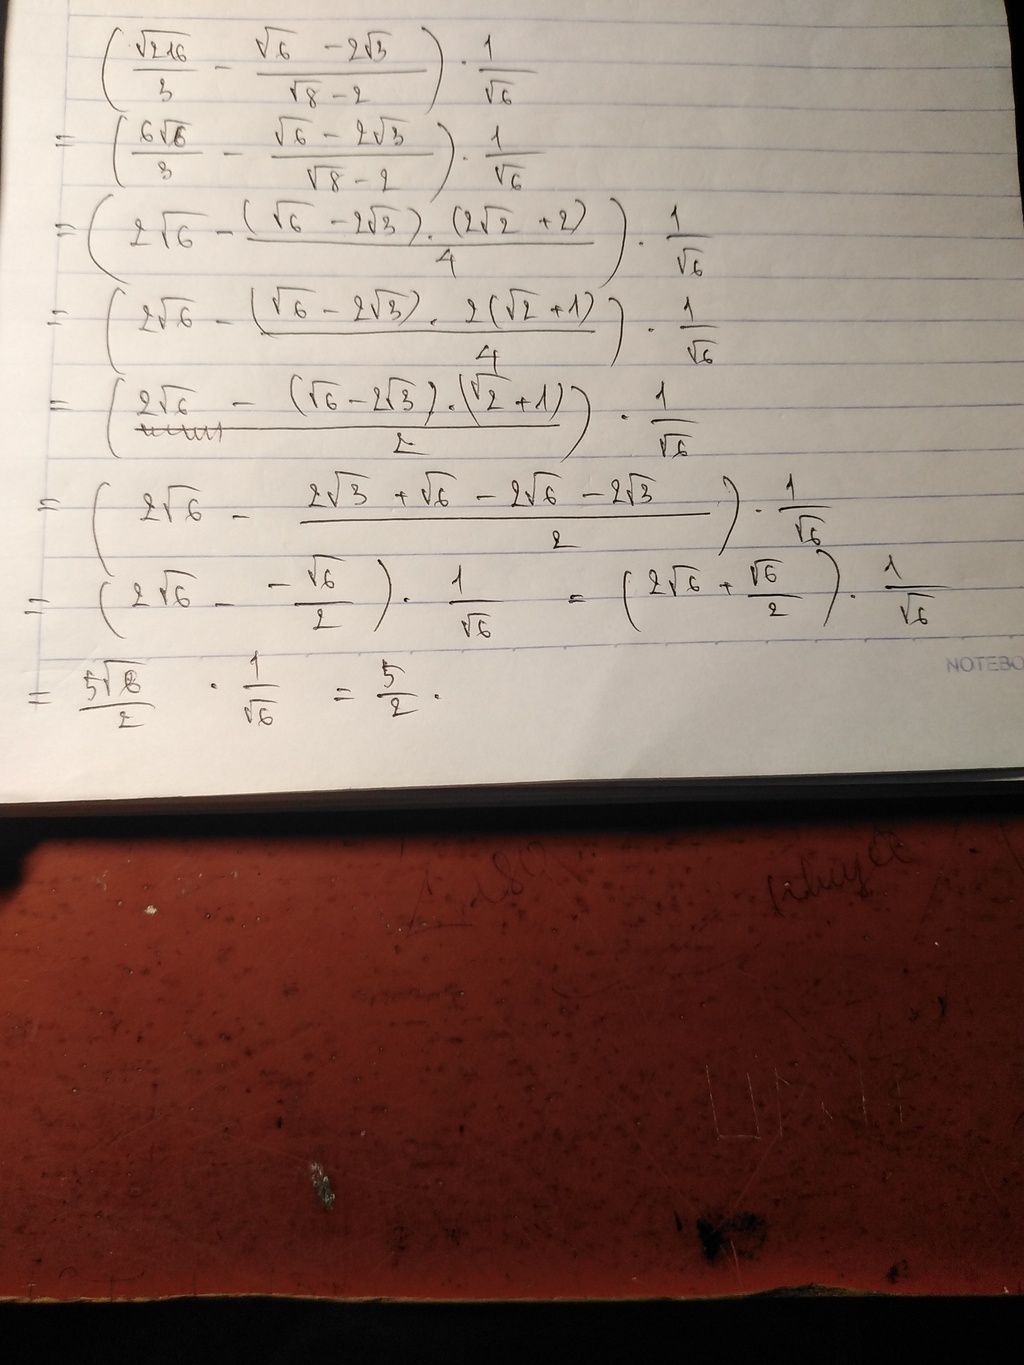 (√216/3 - (√6 - 2√3)/(√8 - 2)) · 1/√6
= (6√6/3 - (√6 - 2√3)/(√8 - 2)) · 1/√6
= (2√6 - (√6 - 2√3) · (2√2 + 2)/4) · 1/√6
= (2√6 - (√6 - 2√3) · 2(√2 + 1)/4) · 1/√6
= (2√6 - (√6 - 2√3) · (√2 + 1)/2) · 1/√6
= (2√6 - (2√3 + √6 - 2√6 - 2√3)/2) · 1/√6
= (2√6 - -√6/2) · 1/√6 = (2√6 + √6/2) · 1/√6
NOTEBO
= 5√6/2 · 1/√6 = 5/2 .